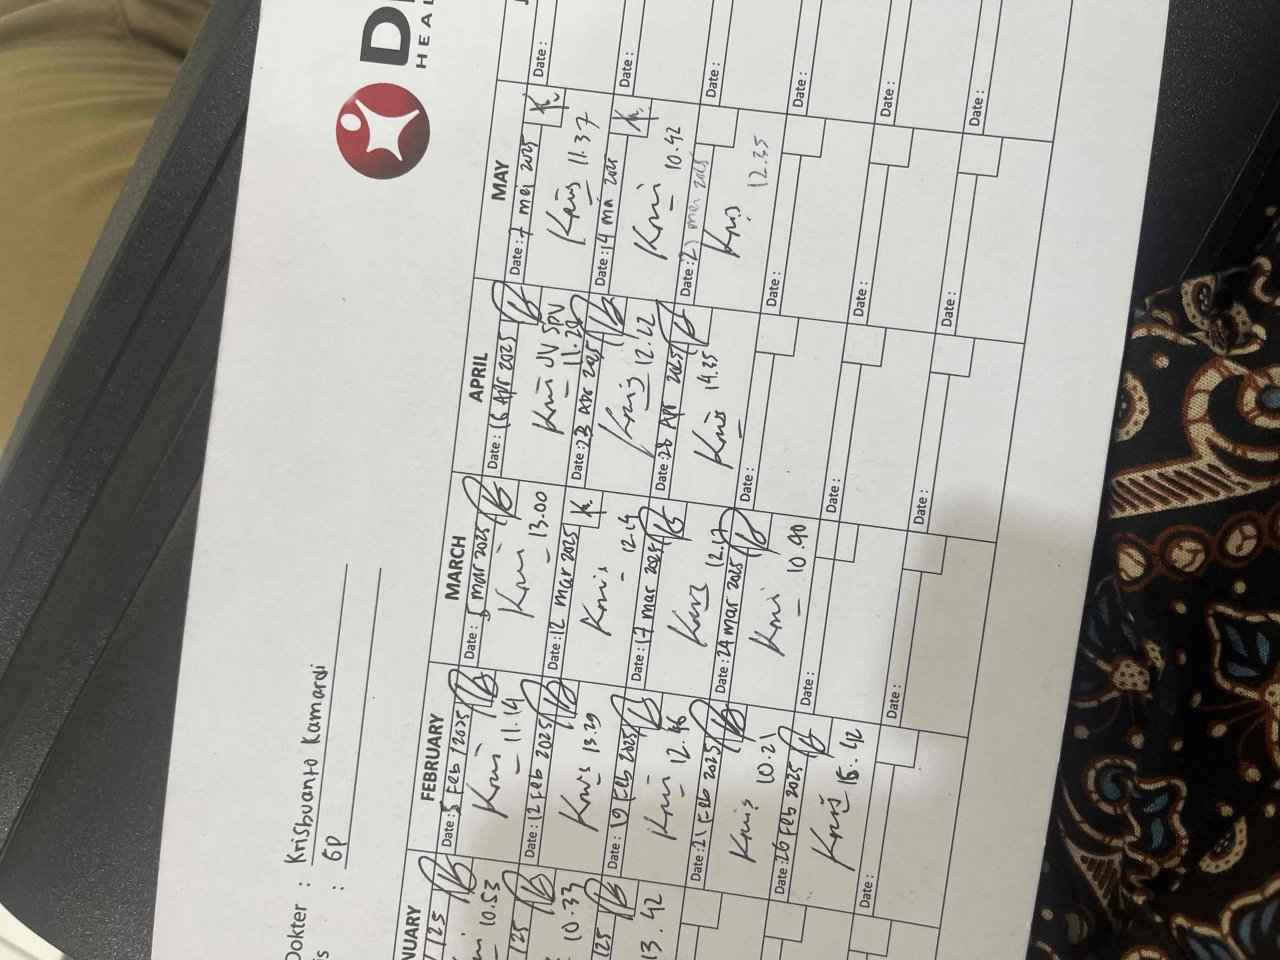 D
HEAL
Dokter : Krisbuanto Kamardi
is : GP
NUARY
125
10.53
125
10.33
125
13.42
FEBRUARY
Date: 5 Feb 2025
Kris 11.14
Date: 12 Feb 2025
Kris 13.29
Date: 19 Feb 2025
Kris 12.46
Date: 21 Feb 2025
Kris 10.21
Date: 26 Feb 2025
Kris 15.42
Date:
MARCH
Date: 5 Mar 2025
Kris 13.00
Date: 12 Mar 2025
Kris 12.14
Date: 17 mar 2025
Kris 12.17
Date: 24 mar 2025
Kris 10.40
Date:
Date:
APRIL
Date: 16 Apr 2025
Kris JV SPV
11.28
Date: 23 Apr 2025
Kris 12.22
Date: 28 Apr 2025
Kris 14.25
Date:
Date:
Date:
MAY
Date: 7 mei 2025
Kris 11.37
Date: 14 mei 2025
Kris 10.42
Date: mei 2025
Kris 12.35
Date:
Date:
Date:
Date:
Date:
Date:
Date:
Date:
Date: